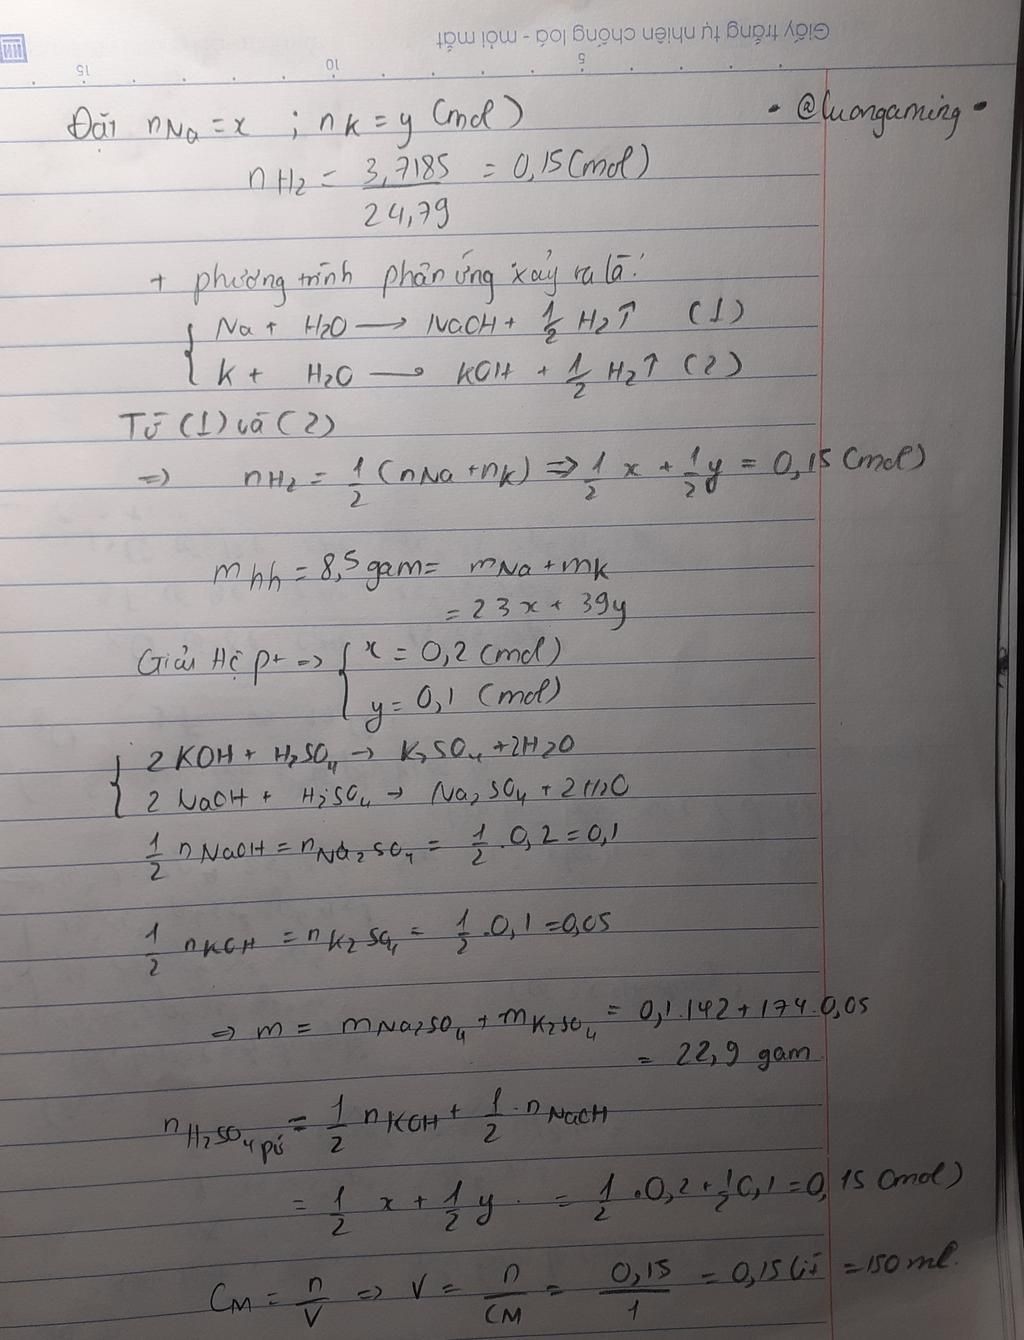 Giấy trắng tự nhiên chống loá - mỏi mắt
5
10
15
• @luongaming •
Đặt nNa = x ; nK = y (mol)
nH2 = 3,7185/24,79 = 0,15 (mol)
+ phương trình phản ứng xảy ra là:
{ Na + H2O → NaOH + 1/2 H2↑ (1)
K + H2O → KOH + 1/2 H2↑ (2)
Từ (1) và (2)
=> nH2 = 1/2 (nNa + nK) => 1/2 x + 1/2 y = 0,15 (mol)
mhh = 8,5 gam = mNa + mK
= 23x + 39y
Giải Hệ pt => { x = 0,2 (mol)
y = 0,1 (mol)
{ 2KOH + H2SO4 → K2SO4 + 2H2O
2 NaOH + H2SO4 → Na2SO4 + 2H2O
1/2 nNaOH = nNa2SO4 = 1/2 . 0,2 = 0,1
1/2 nKOH = nK2SO4 = 1/2 . 0,1 = 0,05
=> m = mNa2SO4 + mK2SO4 = 0,1.142 + 174.0,05
= 22,9 gam
nH2SO4 pứ = 1/2 nKOH + 1/2 . nNaOH
= 1/2 x + 1/2 y = 1/2 . 0,2 + 1/2 0,1 = 0,15 (mol)
CM = n/V => V = n/CM = 0,15/1 = 0,15 lít = 150 ml.